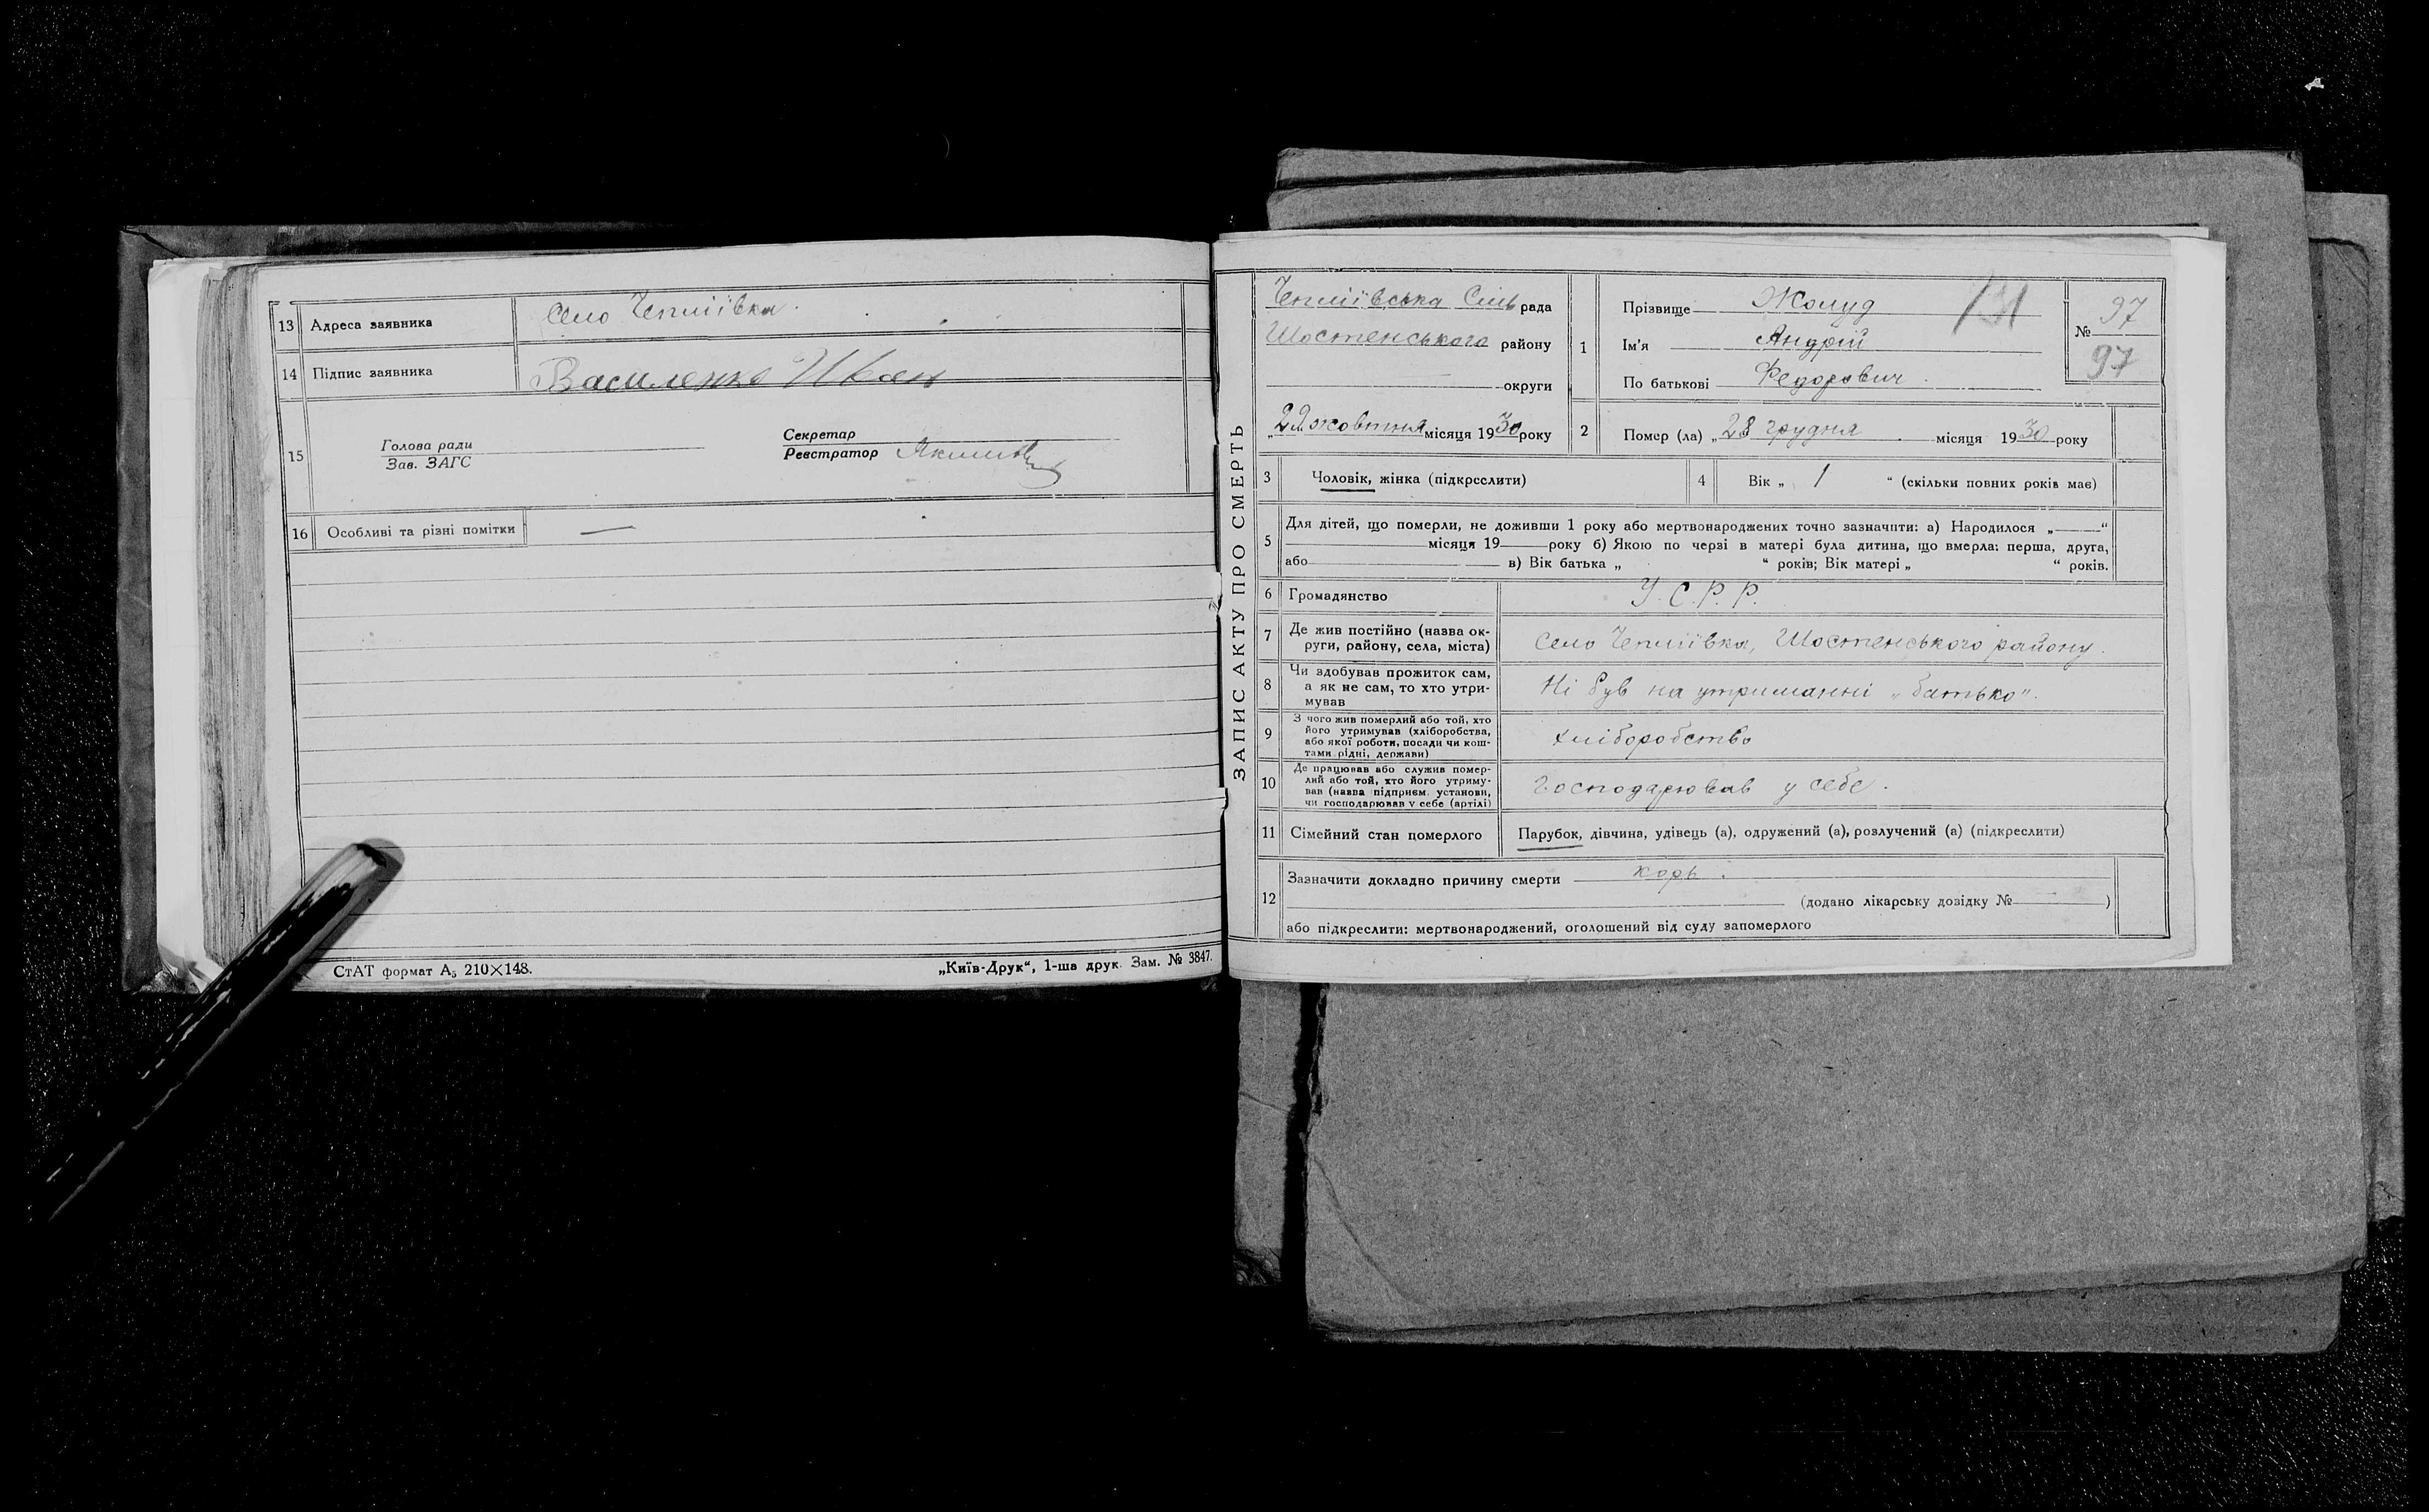 13 Адреса заявника Село Чепліївка.
14 Підпис заявника Василенко Иван
15 Голова ради
Зав. ЗАГС
Секретар
Реєстратор
16 Особливі та різні помітки —
СтАТ формат А5 210×148.
„Київ-Друк“, 1-ша друк. Зам. № 3847.
ЗАПИС АКТУ ПРО СМЕРТЬ
Чепліївська Сіль рада
Шостенського району
округи
„29 жовтня місяця 1930 року
1 Прізвище Жолуд
Ім'я Андрій
По батькові Федорович
131
№ 97
97
2 Помер (ла) „28 грудня місяця 1930 року
3 Чоловік, жінка (підкреслити)
4 Вік „ 1 “ (скільки повних років має)
5 Для дітей, що померли, не доживши 1 року або мертвонароджених точно зазначити: а) Народилося „ — “
місяця 19 року б) Якою по черзі в матері була дитина, що вмерла: перша, друга,
або в) Вік батька „ “ років; Вік матері „ “ років.
6 Громадянство У.С.Р.Р.
7 Де жив постійно (назва ок-
руги, району, села, міста)
Село Чепліївка, Шостенського району.
8 Чи здобував прожиток сам,
а як не сам, то хто утри-
мував
Ні був на утриманні „батько“.
9 З чого жив померлий або той, хто
його утримував (хліборобства,
або якої роботи, посади чи кош-
тами рідні, держави)
хліборобство
10 Де працював або служив помер-
лий або той, хто його утриму-
вав (назва підприєм. установи,
чи господарював у себе (артілі)
господарював у себе.
11 Сімейний стан померлого Парубок, дівчина, удівець (а), одружений (а), розлучений (а) (підкреслити)
12 Зазначити докладно причину смерти корь.
(додано лікарську довідку № — )
або підкреслити: мертвонароджений, оголошений від суду запомерлого